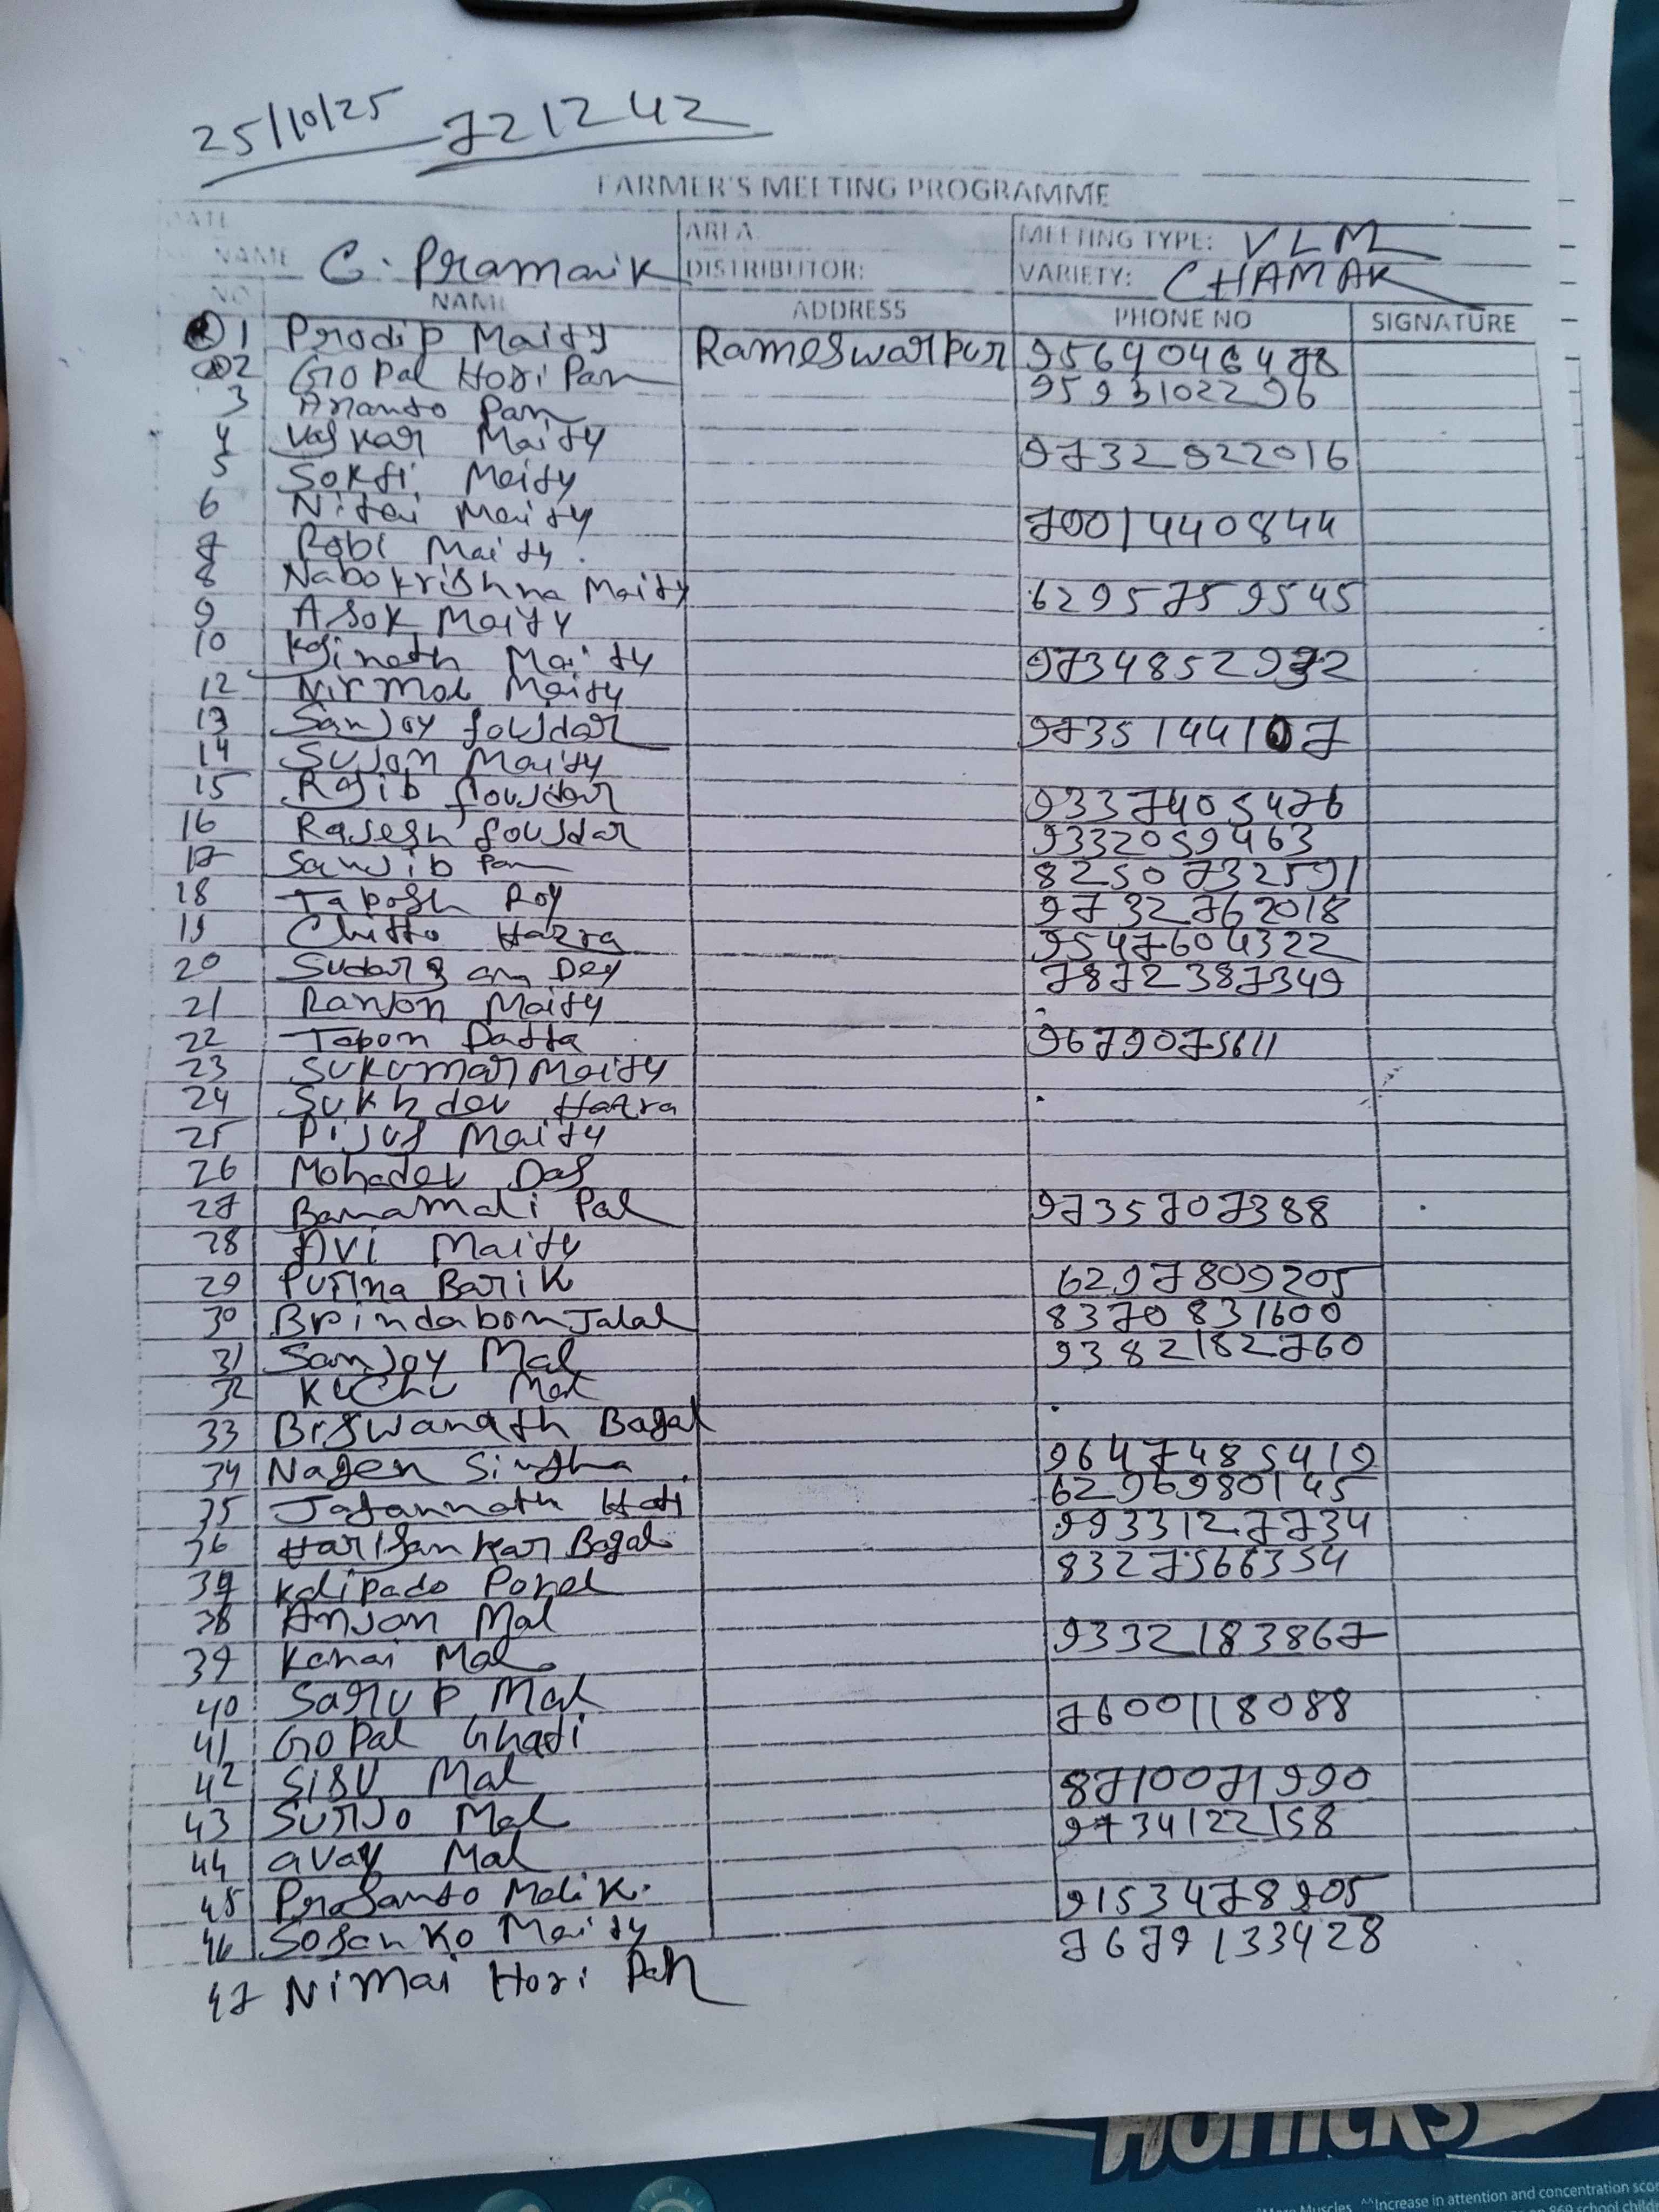 25/10/25 721242
FARMER'S MEETING PROGRAMME
DATE AREA: MEETING TYPE: VLM
NAME G. Pramanik DISTRIBUTOR: VARIETY: CHAMAK
NO NAME ADDRESS PHONE NO SIGNATURE
1 Prodip Maity Rameswarpur 9564046478
2 Gopal Hori Pan 9593102296
3 Ananto Pan
4 Vaskar Maity 9732922016
5 Sokti Maity
6 Nitai Maity 7001440844
7 Robi Maity
8 Nabokrishna Maity 6295759545
9 Asok Maity
10 Kasinath Maity 9734852992
12 Nirmal Maity
13 Sanjoy fouzdar 9735144107
14 Sujan Maity
15 Rajib fouzdar 9337405476
16 Rajesh fouzdar 9332059463
17 Sanjib Pan 8250732591
18 Taposh Roy 9732762018
19 Chitto Hazra 9547604322
20 Sudarsan Dey 7872387349
21 Ranjon Maity
22 Tapon Datta 9679075611
23 Sukumar Maity
24 Sukhdev Hazra
25 Pijus Maity
26 Mohadev Das
27 Banamali Pal 9735707388
28 Avi Maity
29 Purna Barik 6297809205
30 Brindabon Jalal 8370831600
31 Sanjoy Mal 9382182760
32 Kuchu Mal
33 Biswanath Bagal
34 Nagen Singha 9647485419
35 Jagannath Hati 6296980145
36 Harisankar Bagal 9933127734
37 Kalipado Porel 8327566354
38 Anjan Mal
39 Kanai Mal 9332183867
40 Sarup Mal
41 Gopal Ghati 7600118088
42 Sisu Mal
43 Surjo Mal 8710071990
44 avay Mal 9734122158
45 Prosanto Malik
46 Sosanko Maity 9153478905
47 Nimai Hori Pan 7679133428
HORLICKS
^^Increase in attention and concentration